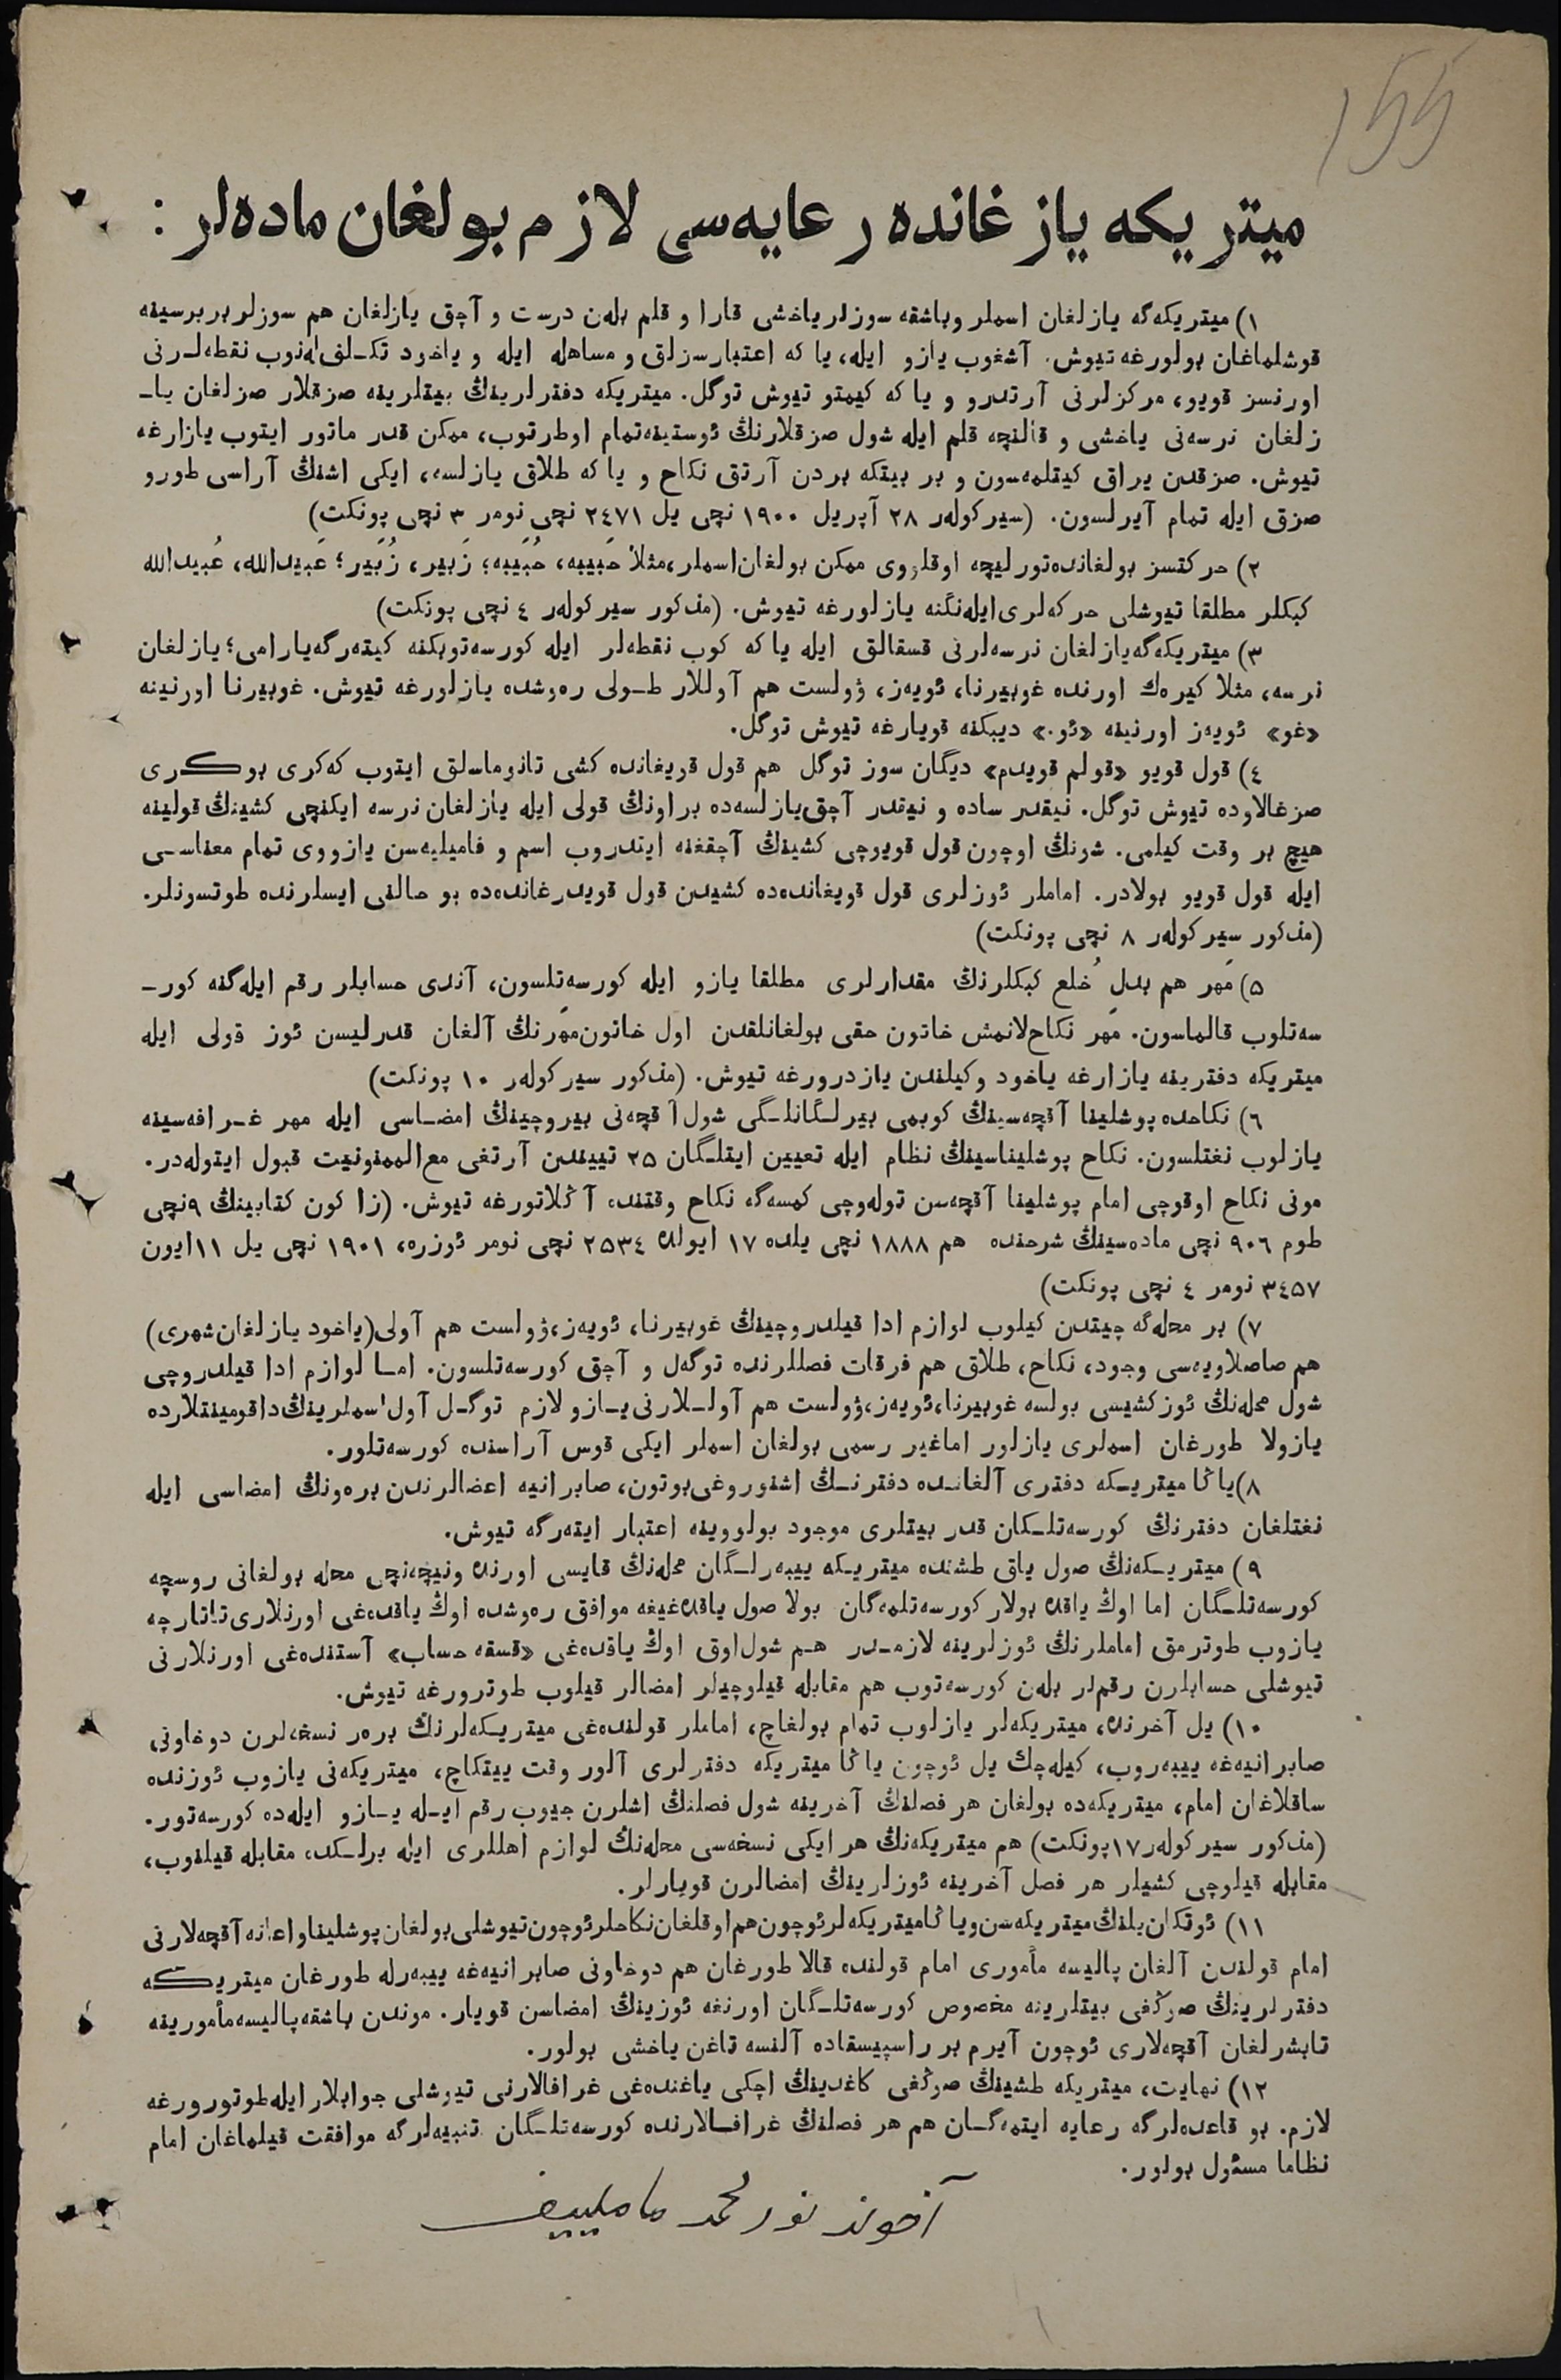 155
ميتريكه يازغانده رعايه‌سى لازم بولغان ماده‌لر :
١) ميتريكه‌گه يازلغان اسملر وباشقه سوزلر ياخشى قارا و قلم بله‌ن درست و آچق يازلغان هم سوزلر بربرسينه
قوشلماغان بولورغه تيوش. آشغوب يازو ايله، يا كه اعتبارسزلق و مساهله ايله و ياخود تكـلف‌له‌نوب نقطه‌لـرنى
اورنسز قويو، مركزلرنى آرتدرو و يا كه كيمتو تيوش توگل. ميتريكه دفترلرينڭ بيتلرينه صزقلار صزلغان ياـ
زلغان نرسه‌نى ياخشى و قالنچه قلم ايله شول صزقلارنڭ ئوستينه‌تمام اوطرتوب، ممكن قدر ماتور ايتوب يازارغه
تيوش. صزقدن يراق كيتلمه‌سون و بر بيتكه بردن آرتق نكاح و يا كه طلاق يازلسه، ايكى اشنڭ آراسى طورو
صزق ايله تمام آيرلسون. (سيركوله‌ر ٢٨ آپريل ١٩٠٠ نچى يل ٢٤٧١ نچى نومر ٣ نچى پونكت)
٢) حركتسز بولغانده‌تورليچه اوقلووى ممكن بولغان‌اسملر،مثلا حَبيبه، حُبَيبه؛ زَبير، زُبَير؛ عَبيدالله، عُبيدالله
كبكلر مطلقا تيوشلى حركه‌لرى‌ايله‌نگنه يازلورغه تيوش. (مذكور سيركوله‌ر ٤ نچى پونكت)
٣) ميتريكه‌گه‌يازلغان نرسه‌لرنى قسقالق ايله يا كه كوب نقطه‌لر ايله كورسه‌توبكنه كيته‌رگه‌يارامى؛ يازلغان
نرسه، مثلا كيره‌ك اورنده غوبيرنا، ئويه‌ز، ۋولست هم آوللار طـولى ره‌وشده يازلورغه تيوش. غوبيرنا اورنينه
«غو» ئويه‌ز اورنينه «ئو.» ديبكنه قويارغه تيوش توگل.
٤) قول قويو «قولم قويدم» ديگان سوز توگل هم قول قويغانده كشى تانوماسلق ايتوب كه‌كرى بوكرى
صزغالاوده تيوش توگل. نيقدر ساده و نيقدر آچق‌يازلسه‌ده براونڭ قولى ايله يازلغان نرسه ايكنچى كشينڭ قولينه
هيچ بر وقت كيلمى. شونڭ اوچون قول قويوچى كشينڭ آچقغنه ايتدروب اسم و فاميليه‌سن يازووى تمام معناسـى
ايله قول قويو بولادر. اماملر ئوزلرى قول قويغانده‌ده كشيدن قول قويدرغانده‌ده بو حالنى ايسلرنده طوتسونلر.
(مذكور سيركوله‌ر ٨ نچى پونكت)
٥) مَهر هم بدلِ خُلع كبكلرنڭ مقدارلرى مطلقا يازو ايله كورسه‌تلسون، آندى حسابلر رقم ايله‌گنه كورـ
سه‌تلوب قالماسون. مَهر نكاح‌لانمش خاتون حقى بولغانلقدن اول خاتون‌مهرنڭ آلغان قدرليسن ئوز قولى ايله
ميتريكه دفترينه يازارغه ياخود وكيلندن يازدرورغه تيوش. (مذكور سيركوله‌ر ١٠ پونكت)
٦) نكاحده پوشلينا آقچه‌سينڭ كوبمى بيرلـگانلـگى شول آقچه‌نى بيروچينڭ امضـاسى ايله مهر غـرافه‌سينه
يازلوب نغتلسون. نكاح پوشليناسينڭ نظام ايله تعيين ايتلـگان ٢٥ تييندن آرتغى مع‌الممنونيت قبول ايتوله‌در.
مونى نكاح اوقوچى امام پوشلينا آقچه‌سن توله‌وچى كمسه‌گه نكاح وقتنده آڭلاتورغه تيوش. (زاكون كتابينڭ ٩نچى
طوم ٩٠٦ نچى ماده‌سينڭ شرحنده هم ١٨٨٨ نچى يلده ١٧ ايولده ٢٥٣٤ نچى نومر ئوزره، ١٩٠١ نچى يل ١١ايون
٣٤٥٧ نومر ٤ نچى پونكت)
٧) بر محله‌گه چيتدن كيلوب لوازم ادا قيلدروچينڭ غوبيرنا، ئويه‌ز،ۋولست هم آولى(ياخود يازلغان‌شهرى)
هم صاصلاويه‌سى وجود، نكاح، طلاق هم فرقات فصللرنده توگه‌ل و آچق كورسه‌تلسون. امـا لوازم ادا قيلدروچى
شول محله‌نڭ ئوزكشيسى بولسه غوبيرنا،ئويه‌ز،ۋولست هم آولـلارنى يـازو لازم توگـل آول اسملرينڭ‌داقومينتلارده
يازولا طورغان اسملرى يازلور اماغير رسمى بولغان اسملر ايكى قوس آراسنده كورسه‌تلور.
٨)ياڭا ميتريـكه دفترى آلغانـده دفترنـڭ اشنوروغى‌بوتون، صابرانيه اعضالرندن بره‌ونڭ امضاسى ايله
نغتلغان دفترنڭ كورسه‌تلـكان قدر بيتلرى موجود بولووينه اعتبار ايته‌رگه تيوش.
٩) ميتريـكه‌نڭ صول ياقى طشنده ميتريـكه ييبه‌رلـگان محله‌نڭ قايسى اورنده ونيچه‌نچى محله بولغانى روسچه
كورسه‌تلـگان اما اوڭ ياقده بولار كورسه‌تلمه‌گان بولا صول ياقده‌غيغه موافق ره‌وشده اوڭ ياقده‌غى اورنلارى‌تاتارچه
يازوب طوترمق اماملرنڭ ئوزلرينه لازمـدر هـم شول‌اوق اوڭ ياقده‌غى «قسقه حساب» آستنده‌غى اورنلارنى
تيوشلى حسابلرن رقم‌لر بله‌ن كورسه‌توب هم مقابله قيلوچيلر امضالر قيلوب طوترورغه تيوش.
١٠) يل آخرنده، ميتريكه‌لر يازلوب تمام بولغاچ، اماملر قولنده‌غى ميتريـكه‌لرنڭ بره‌ر نسخه‌لرن دوخاونى
صابرانيه‌غه ييبه‌روب، كيله‌چك يل ئوچون ياڭا ميتريكه دفترلرى آلور وقت ييتكاچ، ميتريكه‌نى يازوب ئوزنده
ساقلاغان امام، ميتريكه‌ده بولغان هر فصلنڭ آخرينه شول فصلنڭ اشلرن جيوب رقم ايـله يـازو ايله‌ده كورسه‌تور.
(مذكور سيركوله‌ر١٧پونكت) هم ميتريكه‌نڭ هر ايكى نسخه‌سى محله‌نڭ لوازم اهللرى ايله برلـكده مقابله قيلنوب،
مقابله قيلوچى كشيلر هر فصل آخرينه ئوزلرينڭ امضالرن قويارلر.
١١) ئوتكان‌يلنڭ‌ميتريكه‌سن‌وياڭاميتريكه‌لرئوچون‌هم‌اوقلغان‌نكاحلرئوچون‌تيوشلى‌بولغان‌پوشليناواعانه‌آقچه‌لارنى
امام قولندن آلغان پاليسه مأمورى امام قولنده قالا طورغان هم دوخاونى صابرانيه‌غه ييبه‌رله طورغان ميتريكه
دفترلرينڭ صوڭغى بيتلرينه مخصوص كورسه‌تلـگان اورنغه ئوزينڭ امضاسن قويار. موندن باشقه‌پاليسه‌مأمورينه
تابشرلغان آقچه‌لارى ئوچون آيرم بر راسپيسقاده آلنسه تاغن ياخشى بولور.
١٢) نهايت، ميتريكه طشينڭ صوڭغى كاغدينڭ اچكى ياغنده‌غى غرافالارنى تيوشلى جوابلار ايله‌طوتورورغه
لازم. بو قاعده‌لرگه رعايه ايتمه‌گـان هم هر فصلنڭ غرافـالارنده كورسه‌تلـگان تنبيه‌لرگه موافقت قيلماغان امام
نظاما مسئول بولور.
آخوند نورمحمد ماملييف